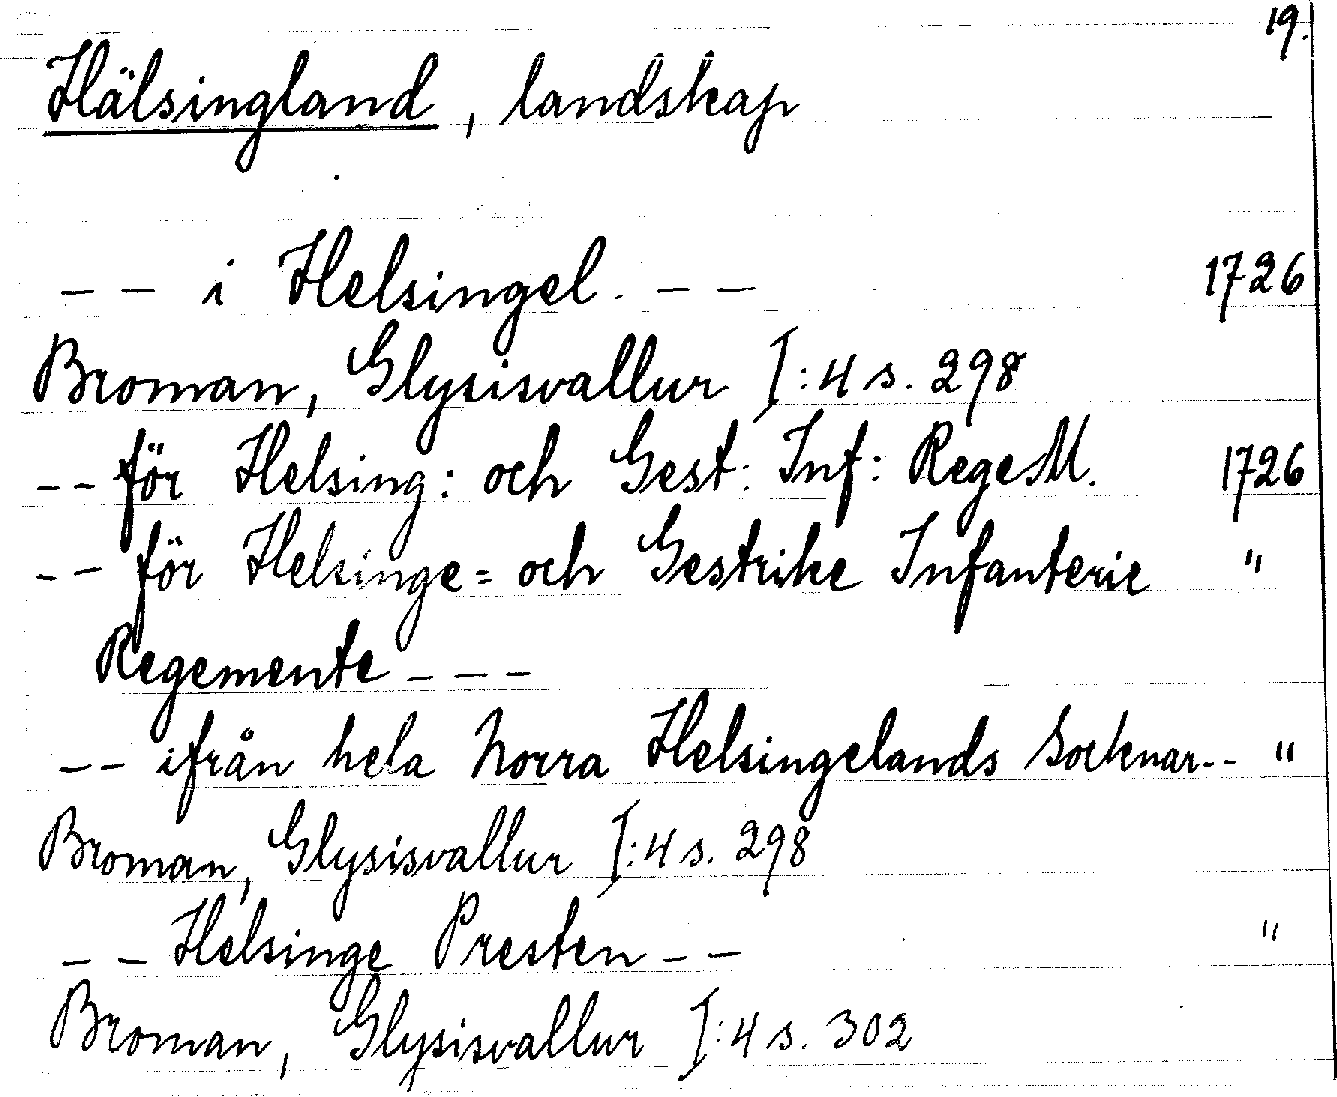 19.
Hälsingland, landskap
-- i Helsingel. -- 1726
Broman, Glysisvallur I:4 s. 298
-- för Helsing: och Gest: Inf: RegeM. 1726
-- för Helsinge= och Gestrike Infanterie "
Regemente ---
-- ifrån hela Norra Helsingelands Socknar-- "
Broman, Glysisvallur I:4 s. 298
-- Helsinge Presten -- "
Broman, Glysisvallur I:4 s. 302